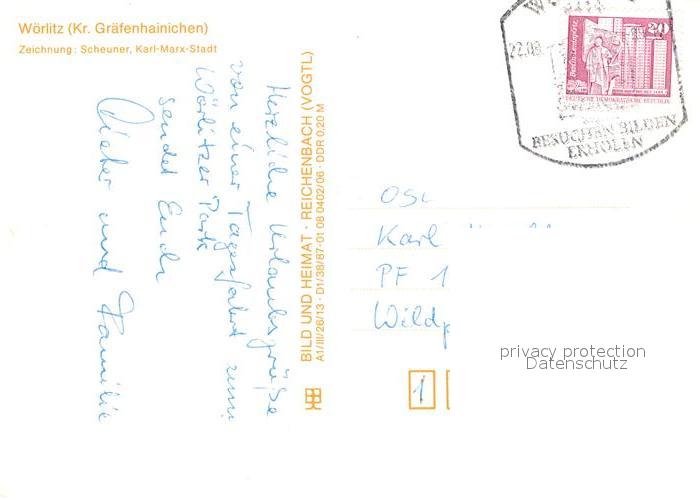 Wörlitz (Kr. Gräfenhainichen)
Zeichnung: Scheuner, Karl-Marx-Stadt
Herzliche Urlaubsgrüße
von einer Tagesfahrt zum
Wörlitzer Park
sendet Euch
Dieter und Familie
BILD UND HEIMAT · REICHENBACH (VOGTL)
A1/III/26/13 · D1/38/87-01 08 0402/06 · DDR 0,20 M
22.08
BESUCHEN BILDEN
ERHOLEN
20
DEUTSCHE DEMOKRATISCHE REPUBLIK
OSL
Karl
PF 1
Wildp
1
privacy protection
Datenschutz